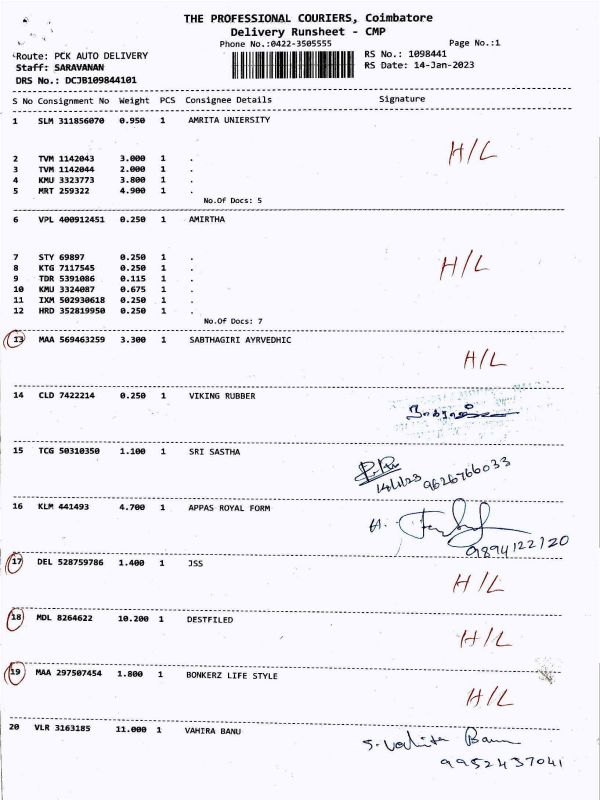 THE PROFESSIONAL COURIERS, Coimbatore
Delivery Runsheet - CMP
Phone No.:0422-3505555 Page No.:1
Route: PCK AUTO DELIVERY RS No.: 1098441
Staff: SARAVANAN RS Date: 14-Jan-2023
DRS No.: DCJB109844101
S No Consignment No Weight PCS Consignee Details Signature
1 SLM 311856070 0.950 1 AMRITA UNIERSITY
H/L
2 TVM 1142043 3.000 1 .
3 TVM 1142044 2.000 1 .
4 KMU 3323773 3.800 1 .
5 MRT 259322 4.900 1 .
No.Of Docs: 5
6 VPL 400912451 0.250 1 AMIRTHA
7 STY 69897 0.250 1 .
H/L
8 KTG 7117545 0.250 1 .
9 TDR 5391086 0.115 1 .
10 KMU 3324087 0.675 1 .
11 IXM 502930618 0.250 1 .
12 HRD 352819950 0.250 1 .
No.Of Docs: 7
13 MAA 569463259 3.300 1 SABTHAGIRI AYRVEDHIC
H/L
14 CLD 7422214 0.250 1 VIKING RUBBER
15 TCG 50310350 1.100 1 SRI SASTHA
14/1/23 9626766033
16 KLM 441493 4.700 1 APPAS ROYAL FORM
9894122120
17 DEL 528759786 1.400 1 JSS
H/L
18 MDL 8264622 10.200 1 DESTFILED
H/L
19 MAA 297507454 1.800 1 BONKERZ LIFE STYLE
H/L
20 VLR 3163185 11.000 1 VAHIRA BANU
S. Vahira Banu
9952437041